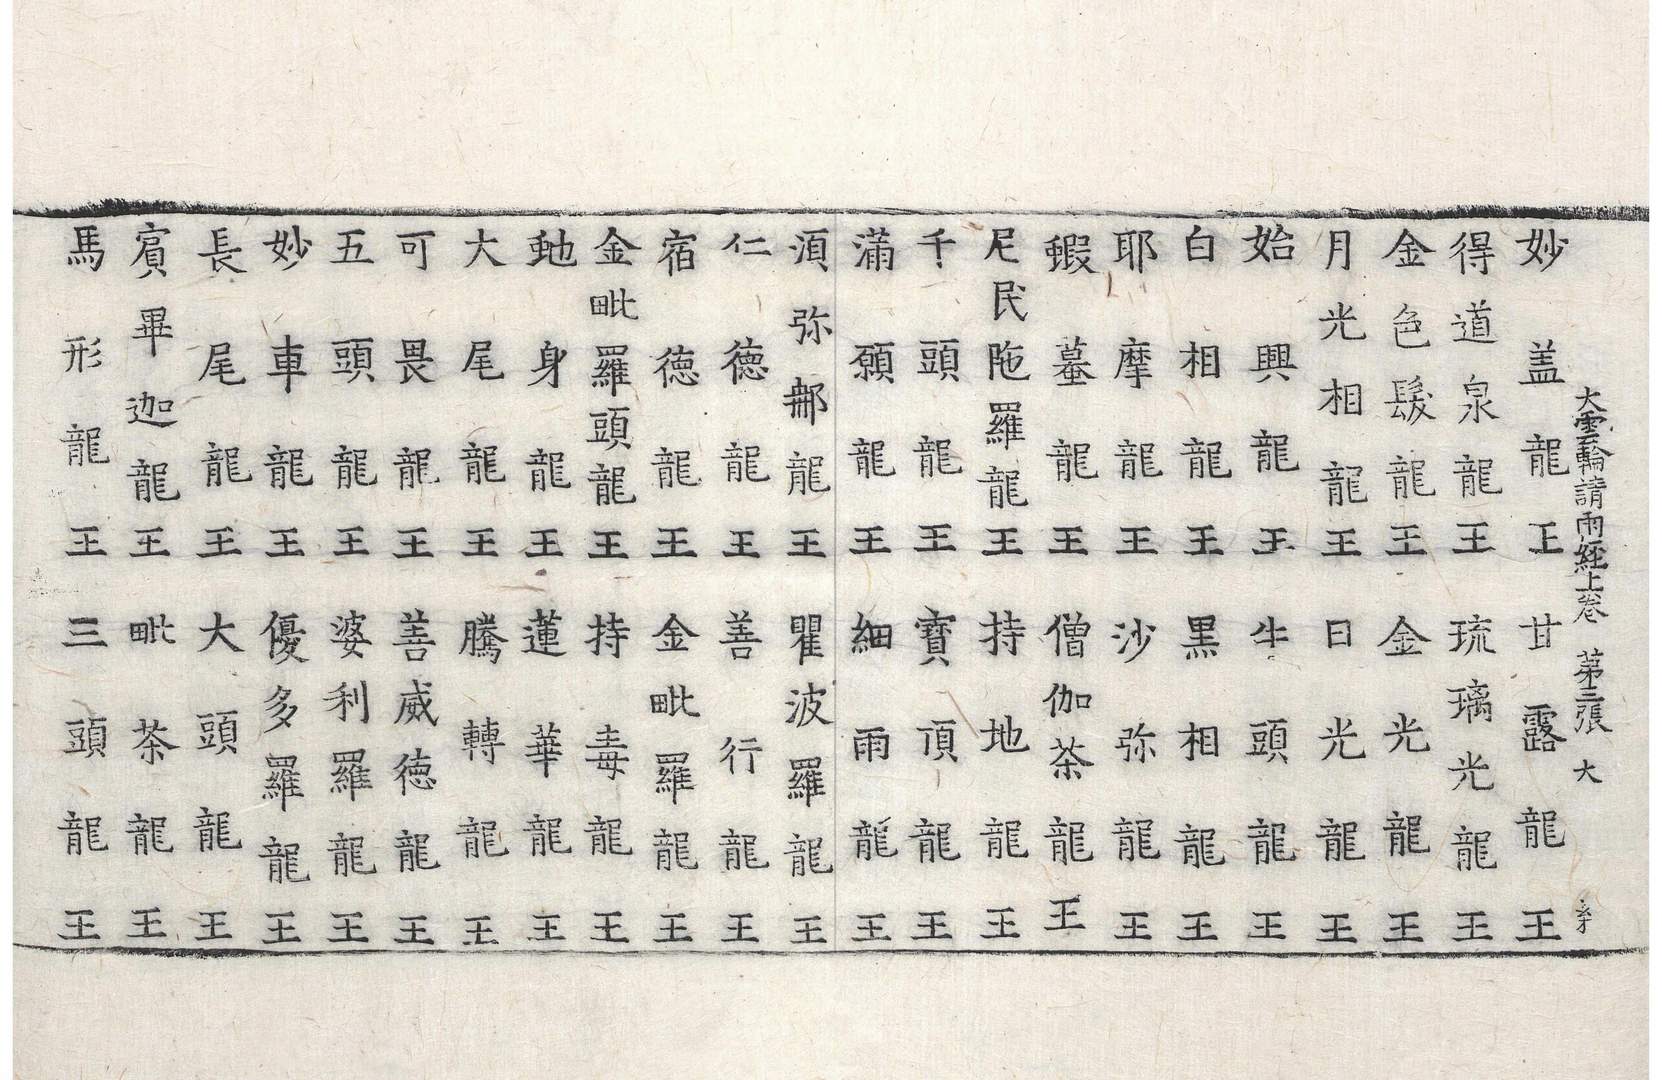 大雲輪請雨經上卷 第三張 大
妙盖龍王 甘露龍王
得道泉龍王 琉璃光龍王
金色髮龍王 金光龍王
月光相龍王 日光龍王
始興龍王 牛頭龍王
白相龍王 黒相龍王
耶摩龍王 沙弥龍王
蝦蟇龍王 僧伽茶龍王
尼民陁羅龍王 持地龍王
千頭龍王 寶頂龍王
滿願龍王 細雨龍王
須弥那龍王 瞿波羅龍王
仁德龍王 善行龍王
宿德龍王 金毗羅龍王
金毗羅頭龍王 持毒龍王
虵身龍王 蓮華龍王
大尾龍王 騰轉龍王
可畏龍王 善威德龍王
五頭龍王 婆利羅龍王
妙車龍王 優多羅龍王
長尾龍王 大頭龍王
賓畢迦龍王 毗茶龍王
馬形龍王 三頭龍王